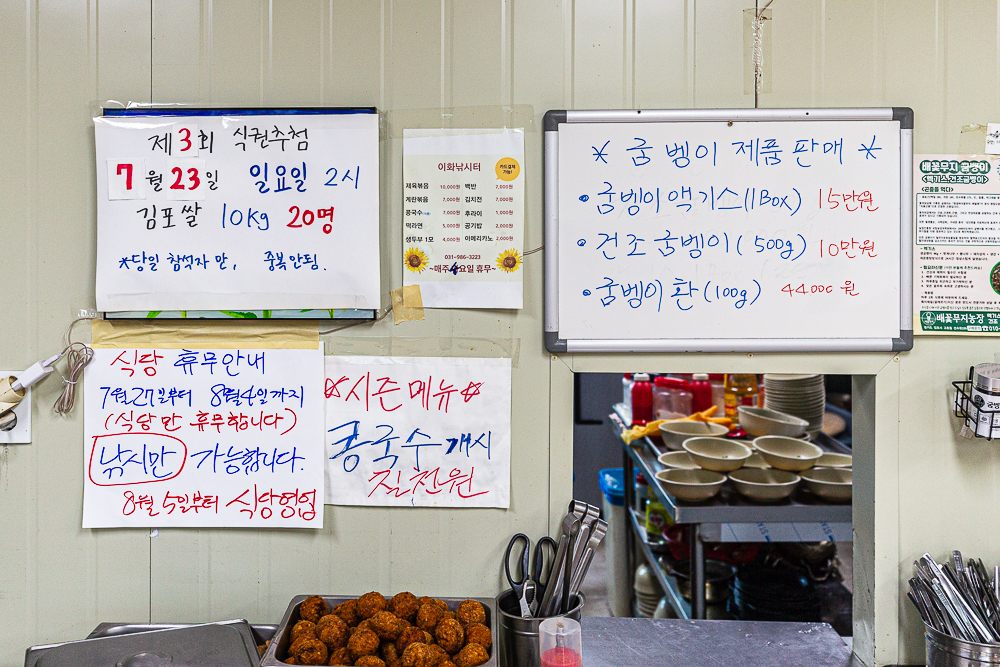 제3회 식권추첨
7월 23일 일요일 2시
김포쌀 10Kg 20명
*당일 참석자 만, 중복안됨.
이화낚시터
카드결제
가능!
제육볶음 10,000원 백반 7,000원
계란볶음 7,000원 김치전 7,000원
콩국수 7,000원 후라이 1,000원
떡라면 5,000원 공기밥 2,000원
생두부 1모 4,000원 아메리카노 2,000원
031-986-3223
~매주 4요일 휴무~
* 굼벵이 제품판매 *
• 굼벵이 액기스(1Box) 15만원
• 건조 굼벵이(500g) 10만원
• 굼벵이 환(100g) 44000원
배꽃무지 굼벵이
<엑기스.건조굼벵이>
배꽃무지농장
식당 휴무안내
7월27일부터 8월4일까지
(식당만 휴무합니다)
낚시만 가능합니다.
8월 5일부터 식당영업
*시즌메뉴*
콩국수 개시
칠천원